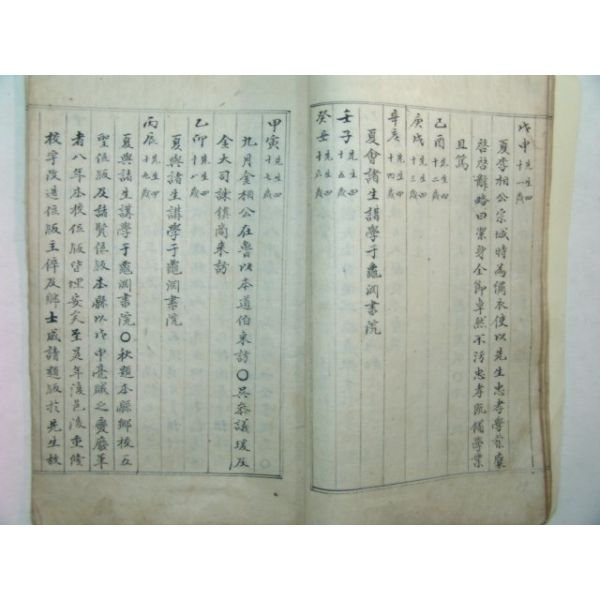 戊申先生四十一歲
夏李相公宗城時為備衣使以先生忠孝學業
啓啓辭略曰潔身全節卓然不汚忠孝旣備學業
且篤
己酉先生四十二歲
庚戌先生四十三歲
辛亥先生四十四歲
夏會諸生講學于龜洞書院
壬子先生四十五歲
癸丑先生四十六歲
甲寅先生四十七歲
九月金相公在魯以本道伯來訪〇吳參議瑗及
金大司諫鎭商來訪
乙卯先生四十八歲
夏與諸生講學于龜洞書院
丙辰先生四十九歲
夏與諸生講學于龜洞書院〇秋題本縣鄕校五
聖位版及諸賢位版本縣以戊申亳賊之變廢革
者八年本校位版皆埋安矣至是年復邑後重隆
校宇改造位版主倅及鄕士咸請題版於先生故